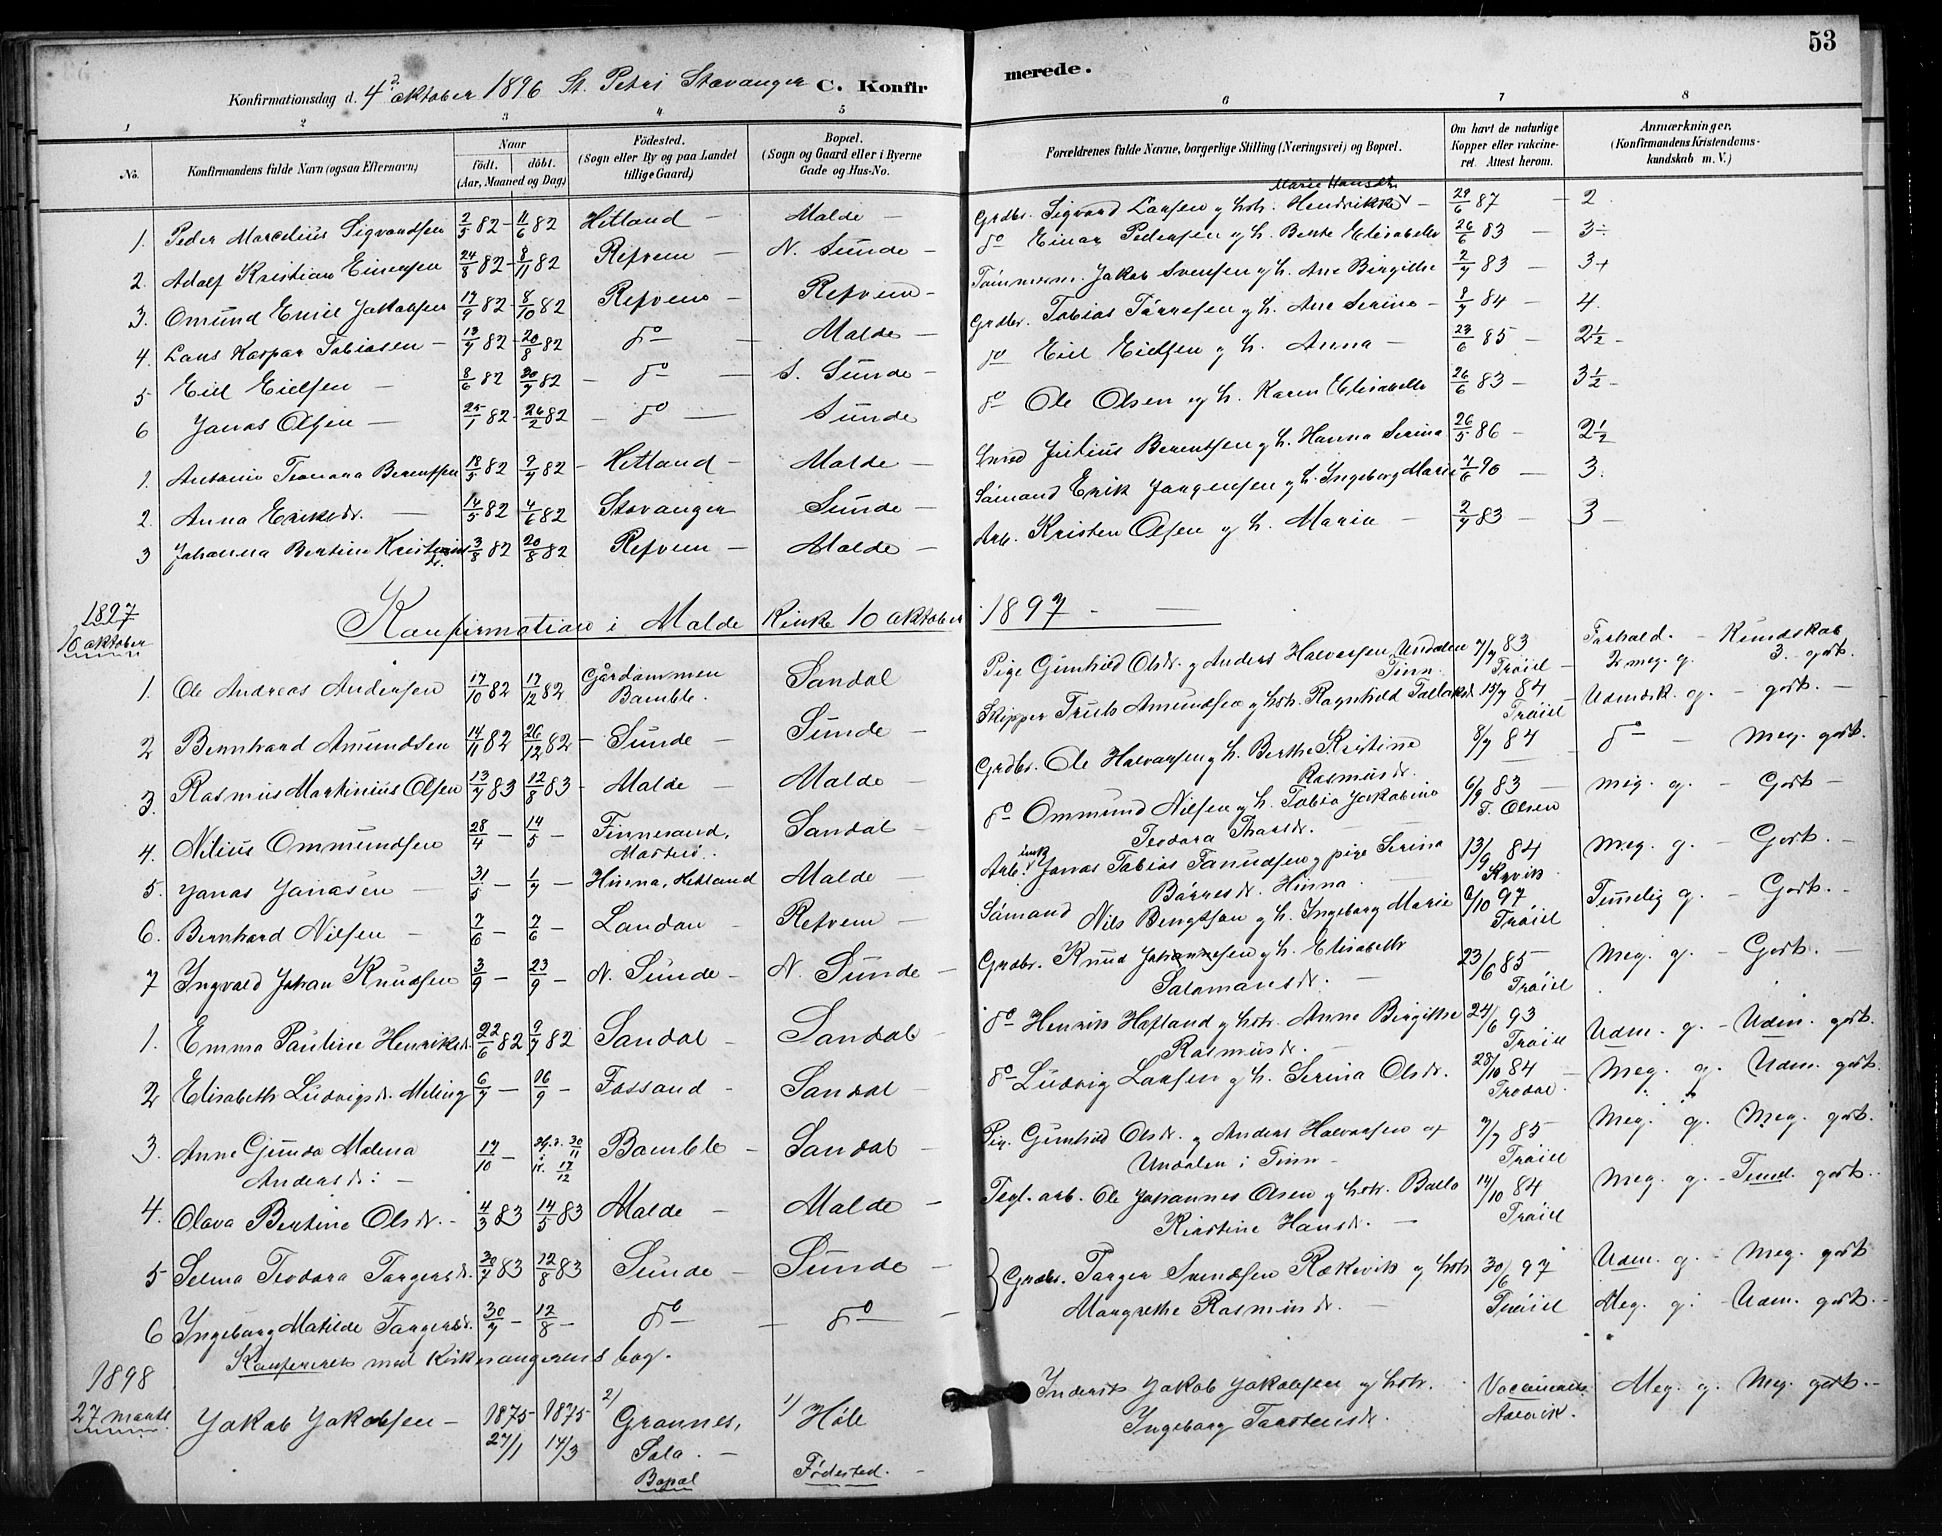 53
Konfirmationsdag d. 4de oktober 1896 St. Petri Stavanger C. Konfirmerede.
1 2 3 4 5 6 7 8
No. Konfirmandens fulde Navn (ogsaa Efternavn) Naar födt. döbt. (Aar, Maaned og Dag) Födested. (Sogn eller By og paa Landet tillige Gaard) Bopæl. (Sogn og Gaard eller i Byerne Gade og Hus-No. Forældrenes fulde Navne, borgerlige Stilling (Næringsvei) og Bopæl. Om havt de naturlige Kopper eller vakcineret. Attest herom. Anmærkninger. (Konfirmandens Kristendomskundskab m. V.)
1. Peder Marcelius Sigvardsen 2/5 82 - 11/6 82 Hetland - Malde - Grdbr. Sigvard Larsen og hstr. Henrikke Marie Hansdr. - 29/6 87 - 2
2. Adolf Kristian Einersen 24/8 82 - 8/11 82 Refvem - N. Sunde - do Einar Pedersen og h. Berte Elisabeth 26/6 83 - 3÷
3. Omund Emil Jakobsen 17/9 82 - 8/10 82 Refvem - Refvem - Tömmerm. Jakob Svensen og h. Ane Birgitte 2/7 83 - 3+
4. Lars Kaspar Tobiasen - 13/7 82 - 20/8 82 do - Malde - Grdbr. Tobias Törresen og h. Ane Serine - 9/7 84 - 4.
5 Eiel Eielsen - 8/6 82 30/7 82 - do - S. Sunde - do Eiel Eielsen og h. Anna - 23/6 85 - 2 1/2 -
6 Jonas Olsen - 25/1 82 - 26/2 82 - do - Sunde do Ole Olsen og h. Karen Elisabeth 26/6 83 - 3 1/2 -
1. Antonie Teodora Berentsen 18/5 82 9/7 82 - Hetland - Malde - Smed Julius Berentsen og h. Hanna Serina 26/5 86 - 2 1/2
2. Anna Eriksdr. - 14/5 82 4/6 82 Stavanger Sunde - Sömand Erik Jörgensen og h. Ingeborg Marie 7/6 90 - 3.
3 Johanna Bertine Kristensdr. 3/8 82 20/8 82 Refvem - Malde - Arb. Kristen Olsen og h. Maria - 2/7 83 - 3 -
1897
10 oktober
Konfirmation i Malde Kirke 10 oktober 1897 -
Forhold. - Kundskab
1. Ole Andreas Andersen 17/10 82 17/12 82 Gårdammen Bamble. Sandal Pige Gunhild Olsdr. og Anders Halvorsen, Undalen Tinn. 7/7 83 Tröiel - 2 meg. g. 3. godt.
2 Bernhard Amundsen 14/11 82 26/12 82 - Sunde - Sunde - Skipper Truls Amundsen og hstr. Ragnhild 15/7 84 Tröiel - Udmerk. g. - godt. -
3. Rasmus Martinius Olsen 13/7 83 12/8 83 - Malde - Malde - Grdbr. Ole Halvorsen og h. Berthe Kristine Rasmusdr. 8/7 84 - do - Meg. godt.
4. Nilius Ommundsen 28/4 - 14/5 - Finnesand, Mosterö. Sandal - do Ommund Nilsen og h. Tobia Jakobine Teodora 6/9 83 - T. Olsen meg. g. - Godt -
5. Jonas Jonasen - 31/5 - 1/7 - Hinna, Hetland Malde - Arb. Jonas Tobias og pige Serina Börresdr. Hinna 13/9 84 Meg. g. - Godt. -
6. Bernhard Nilsen - 2/6 - 7/6 - Landan - Refvem - Sömand Nils Bengtsen og h. Ingeborg Marie 6/10 97 Tröiel Temelig g. - Godt. -
7 Ingvald Johan Knudsen 3/9 - 23/9 - N. Sunde - N. Sunde - Grdbr. Knud Johannesen og h. Elisabeth Salomonsdr. - 23/6 85 - Tröiel Meg. g. - Godt. -
1. Emma Pauline Henriksdr. 22/6 82 9/7 82 Sandal - Sandal - do Henrik Hafland og hstr. Anne Birgitte Rasmusdr. - 24/6 93 Tröiel Udm. g. - Udm. godt.
2 Elisabeth Ludvigsdr. Meling 6/7 - 16/9 - Fossand - Sandal do Ludvig Larsen og h. Serina Olsdr. 28/10 84 - Meg. g. Udm. godt.
3. Anne Gunda Malena Andersdr. - 17/10 - 30/11 17/12 Bamble - Sandal - Pig. Gunhild Olsdr. og Anders Halvorsen af Undalen i Tinn - 7/7 85 Tröiel Meg. g. Meg. godt.
4. Olava Bertine Olsdr. - 4/3 83 14/5 83 Malde - Malde - Tegl. arb. Ole Johannes Olsen og hstr. Kirstine Hansdr. - 14/10 84 Tröiel Meg. g. - Temel. godt.
5 Selma Teodora Torgersdr. 30/7 83 12/8 83 Sunde - Sunde - Grdbr. Torger Svendsen Rækevik og hstr. Margrethe Rasmusdr. - 30/6 97 Tröiel Udm. g. - Meg. godt
6 Ingeborg Matilde Torgersdr. 30/7 - 12/8 - do - do - Meg. g. - Udm. godt. -
Konfereret med Kirkesangerens bog.
1898
27 marts Jakob Jakobsen - 1875 27/1 1875 14/3 2) Grannes, Sola. - Bopæl 1) Höle Födested. - Inderst Jakob Jakobsen og hstr. Ingeborg Torstensdr. Meg. g. Meg. godt. -